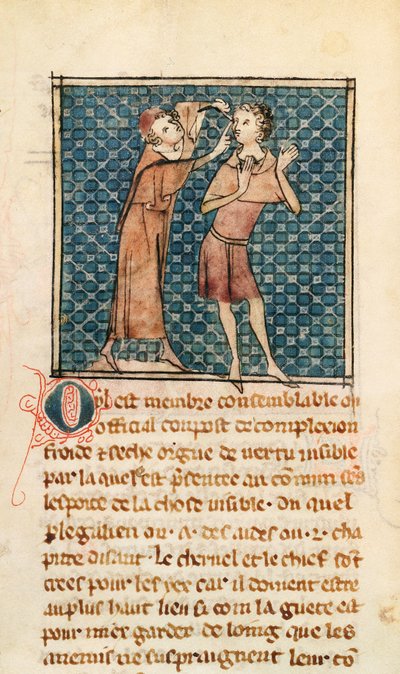 Oyl est membre consemblable ou
official conpost de complexion
froide & seche origne de vertu visible
par la quele est
lespece de la chose visible · du quel
galien ou · x · des aides ou · 2 · cha
pitre disant · le chervel et le chief sōt
crees pour les yex car il doivent estre
au plus haut lieu si com la guete est
pour miex garder de loing que les
anemis ne suspraignent leur cō